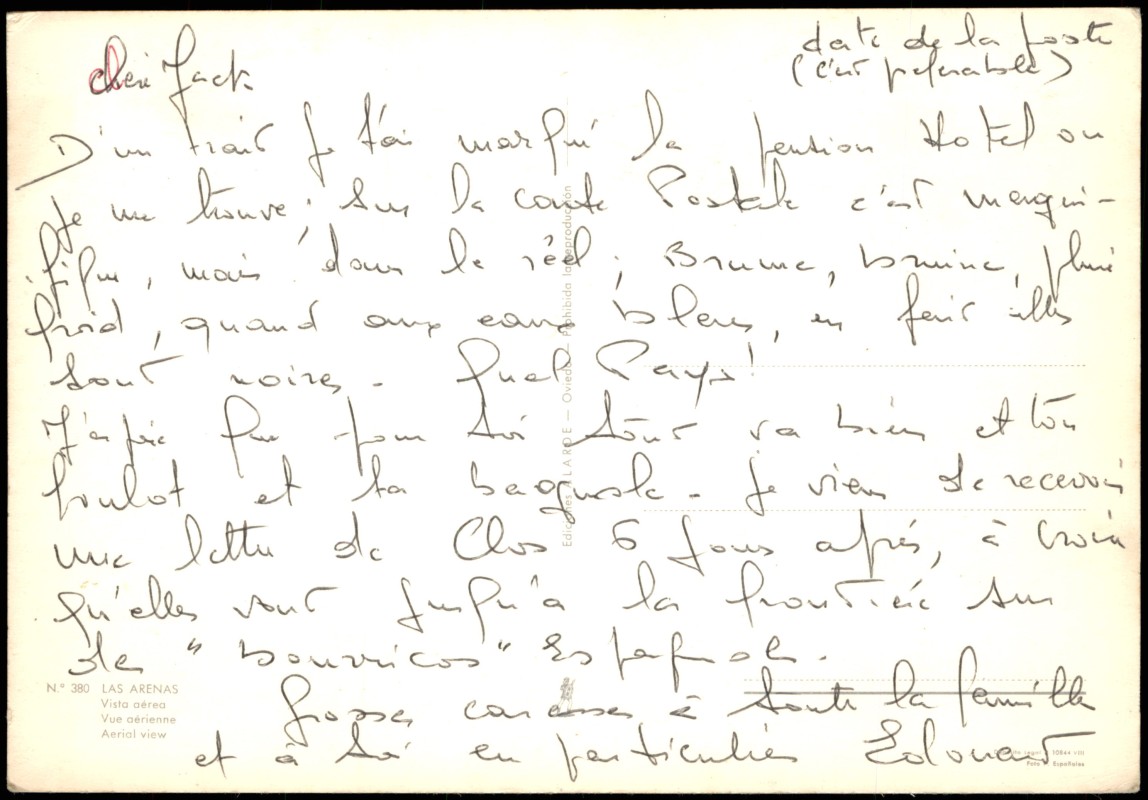 date de la poste
(c'est préférable)
cheri Jack
D'un trait je t'ai marqué la pension Hotel ou
je me trouve. Sur la carte Postale c'est magni-
fique, mais dans le réel, Brume, bruine, pluie
froid, quand aux eaux bleues, en fait elles
sont noires. Quel Pays!
J'espère que pour toi tout va bien et ton
boulot et ta bagnole. Je viens de recevoir
une lettre de Clos 6 jours après, à croire
qu'elles vont jusqu'à la frontière sur
des "bourricos" Espagnols.
Grosses caresses à toute la famille
et à toi en particulier Edouard
N.º 380 LAS ARENAS
Vista aérea
Vue aérienne
Aerial view
Ediciones ALARDE — Oviedo — Prohibida la reproducción
Legal 10864
Foto Españoles